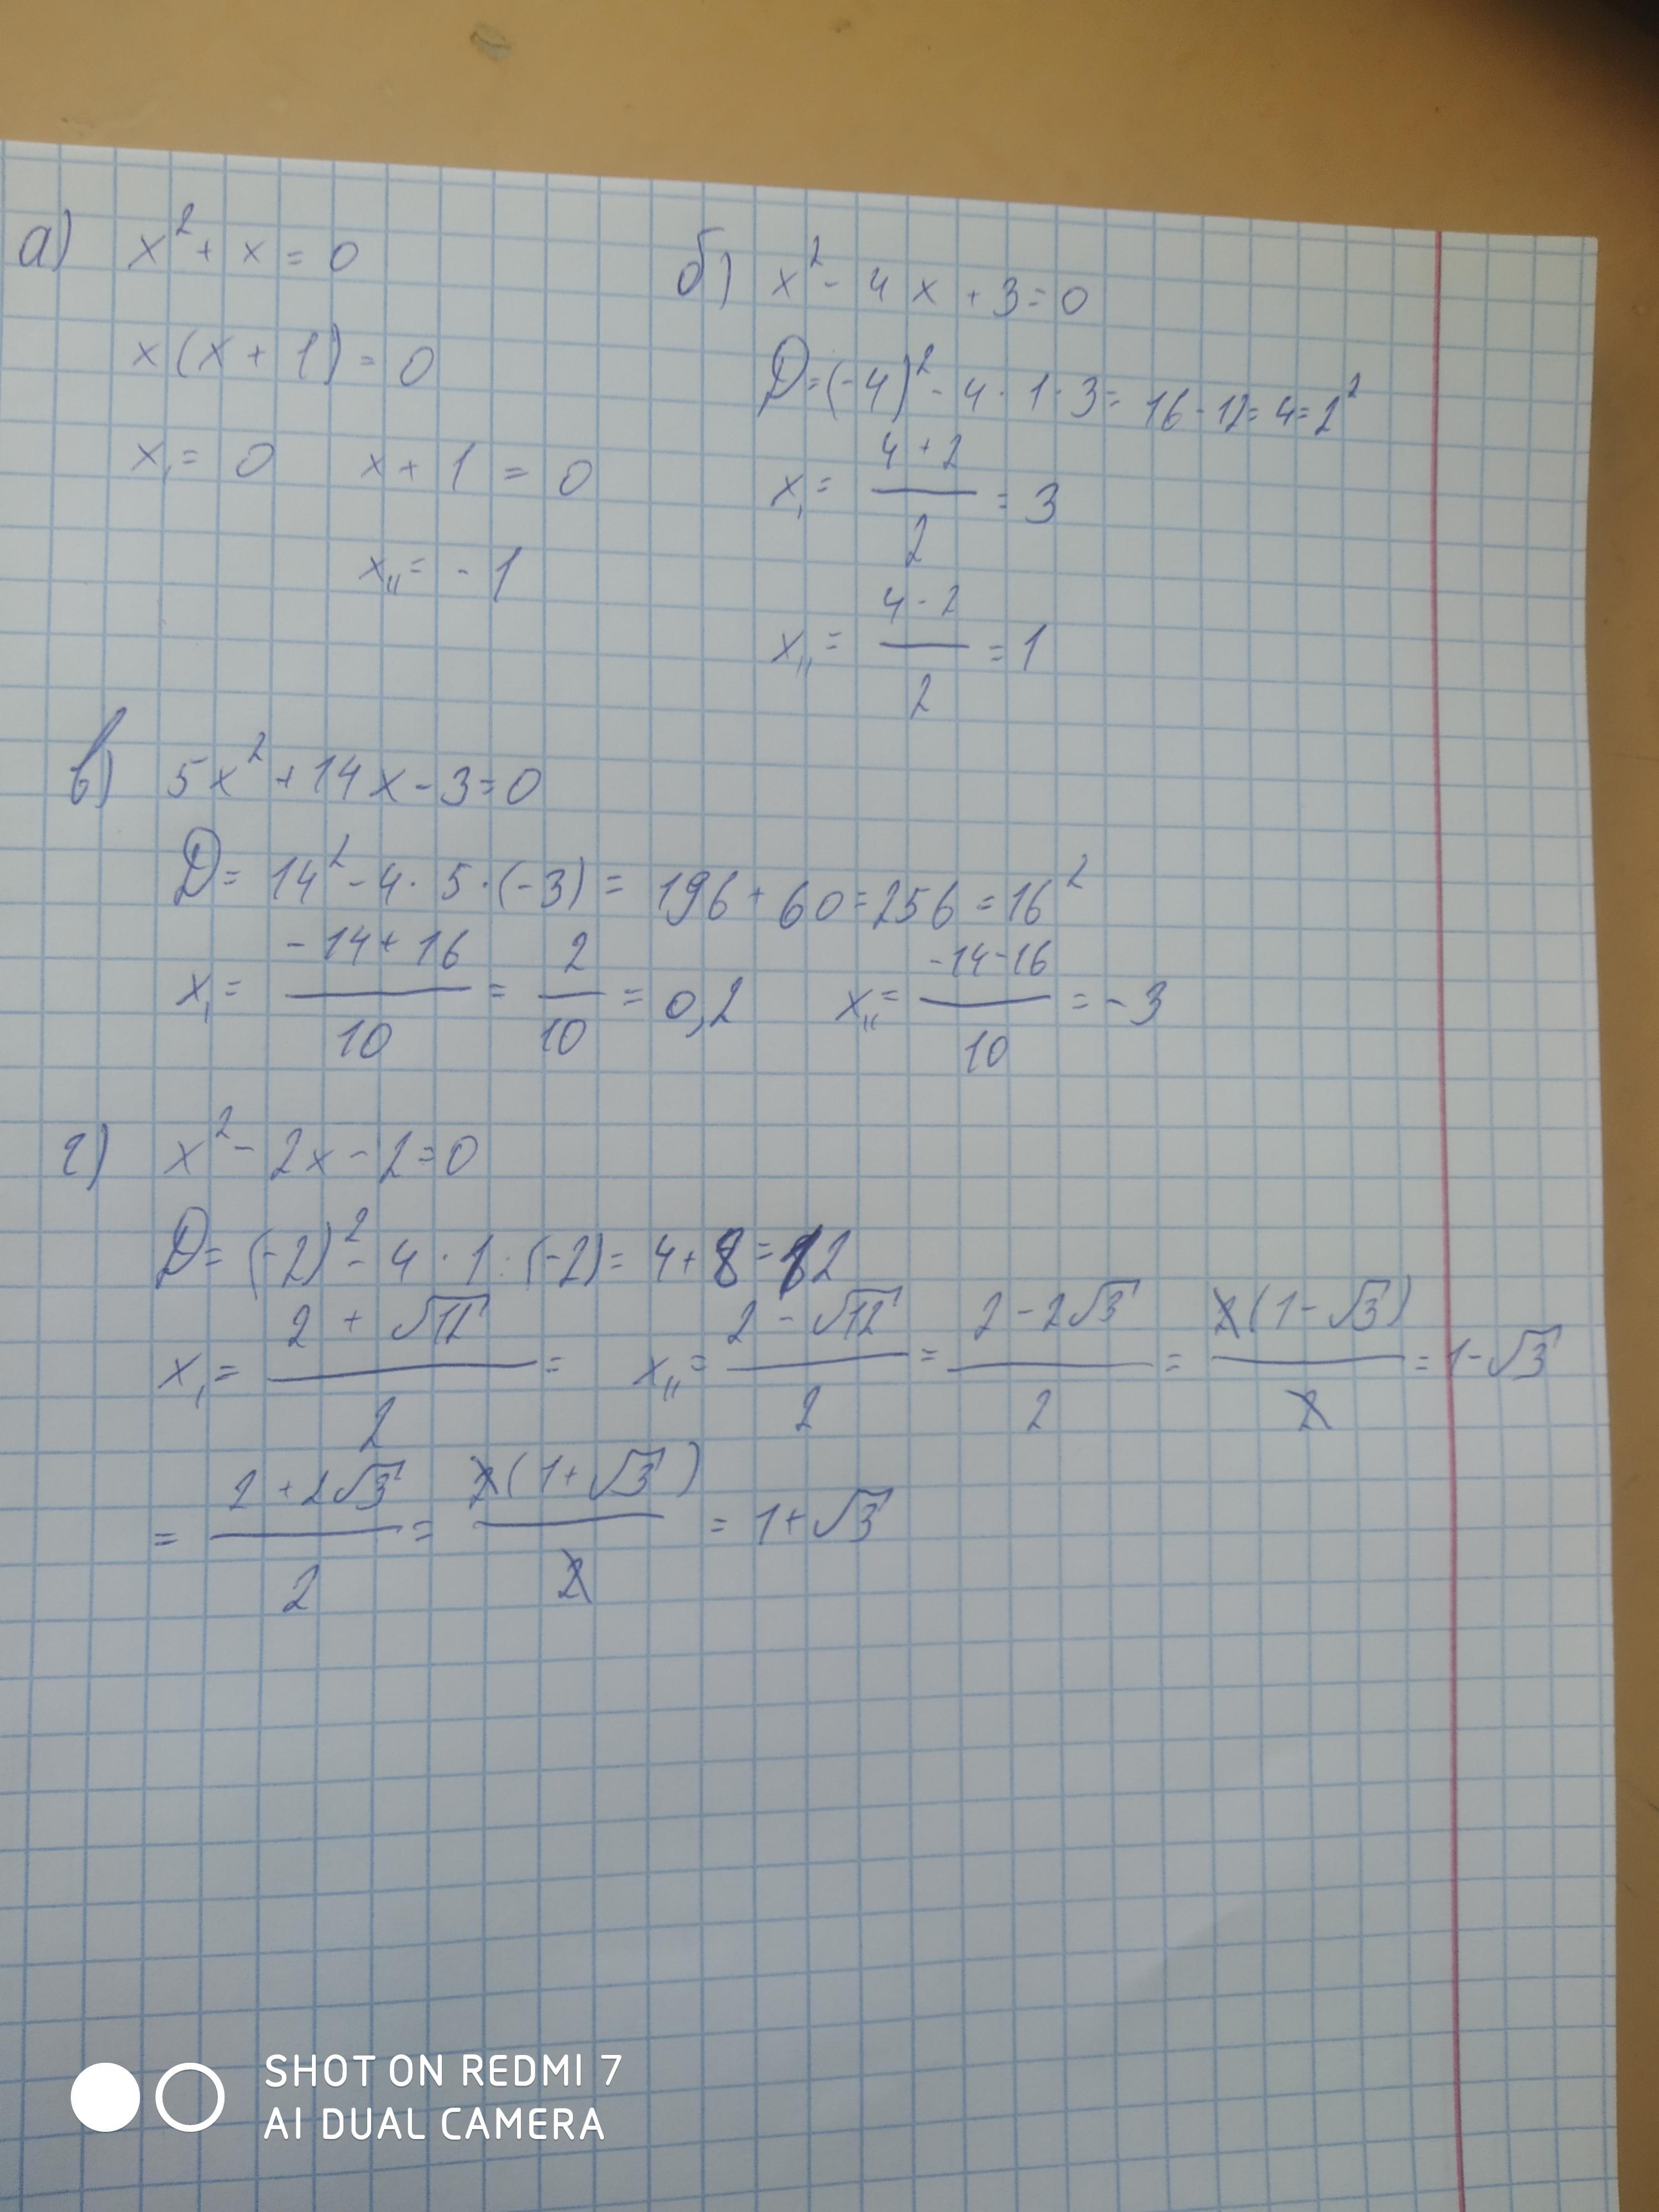 а) x² + x = 0
x(x + 1) = 0
x₁ = 0 x + 1 = 0
x₁₁ = - 1
б) x² - 4x + 3 = 0
D = (-4)² - 4 · 1 · 3 = 16 - 12 = 4 = 2²
x₁ = (4 + 2)/2 = 3
x₁₁ = (4 - 2)/2 = 1
в) 5x² + 14x - 3 = 0
D = 14² - 4 · 5 · (-3) = 196 + 60 = 256 = 16²
x₁ = (-14 + 16)/10 = 2/10 = 0,2 x₁₁ = (-14 - 16)/10 = -3
г) x² - 2x - 2 = 0
D = (-2)² - 4 · 1 · (-2) = 4 + 8 = 12
x₁ = (2 + √12)/2 = x₁₁ = (2 - √12)/2 = (2 - 2√3)/2 = 2(1 - √3)/2 = 1 - √3
= (2 + 2√3)/2 = 2(1 + √3)/2 = 1 + √3
SHOT ON REDMI 7
AI DUAL CAMERA